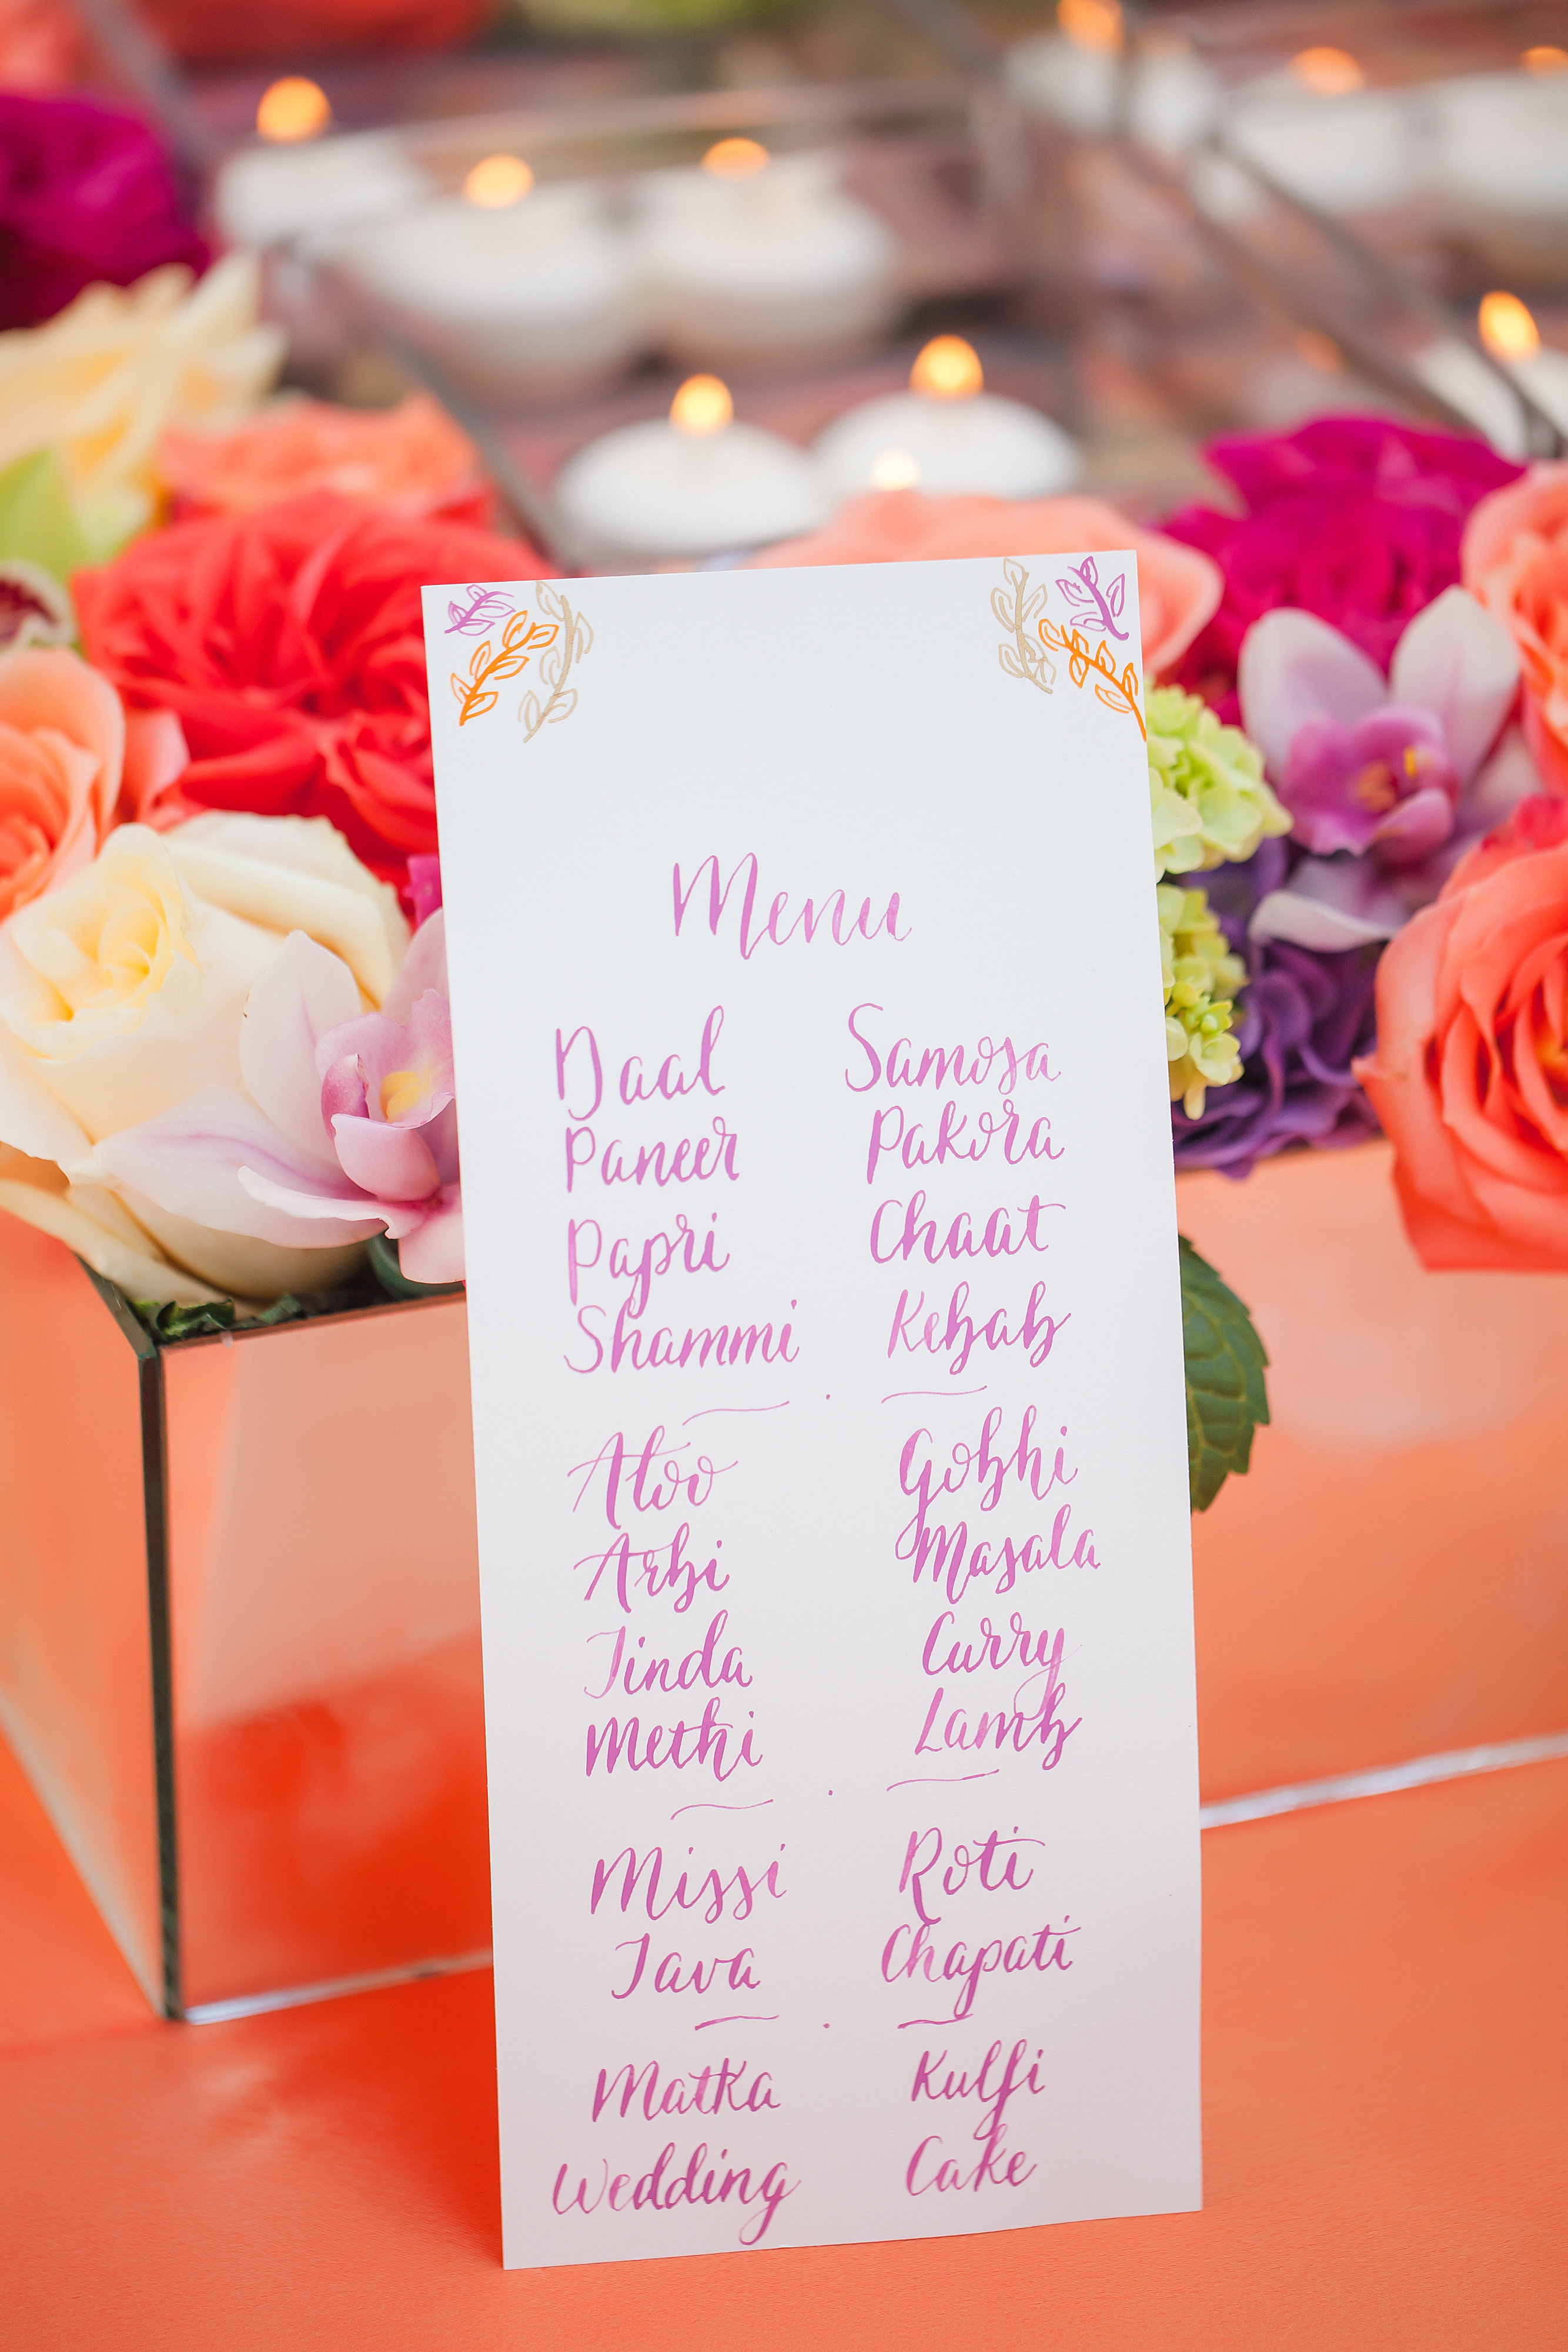 Menu
Daal Samosa
Paneer Pakora
Papri Chaat
Shammi Kebab
Aloo Gobhi
Arbi Masala
Tinda Curry
Methi Lamb
Missi Roti
Tava Chapati
Matka Kulfi
Wedding Cake